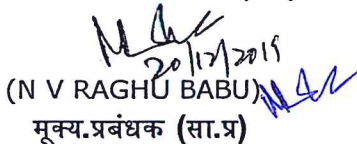 20/12/2019
(N V RAGHU BABU)
मूक्य.प्रबंधक (सा.प्र)